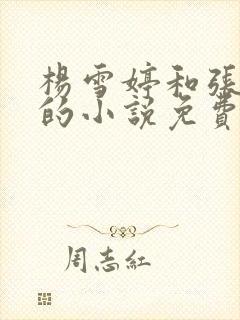 楊雪婷和張
的小說免費
周志紅